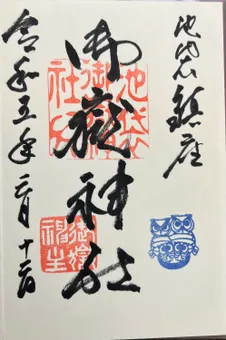 池袋鎮座
御嶽神社
令和五年二月十二日
池袋御嶽神社
御嶽福生